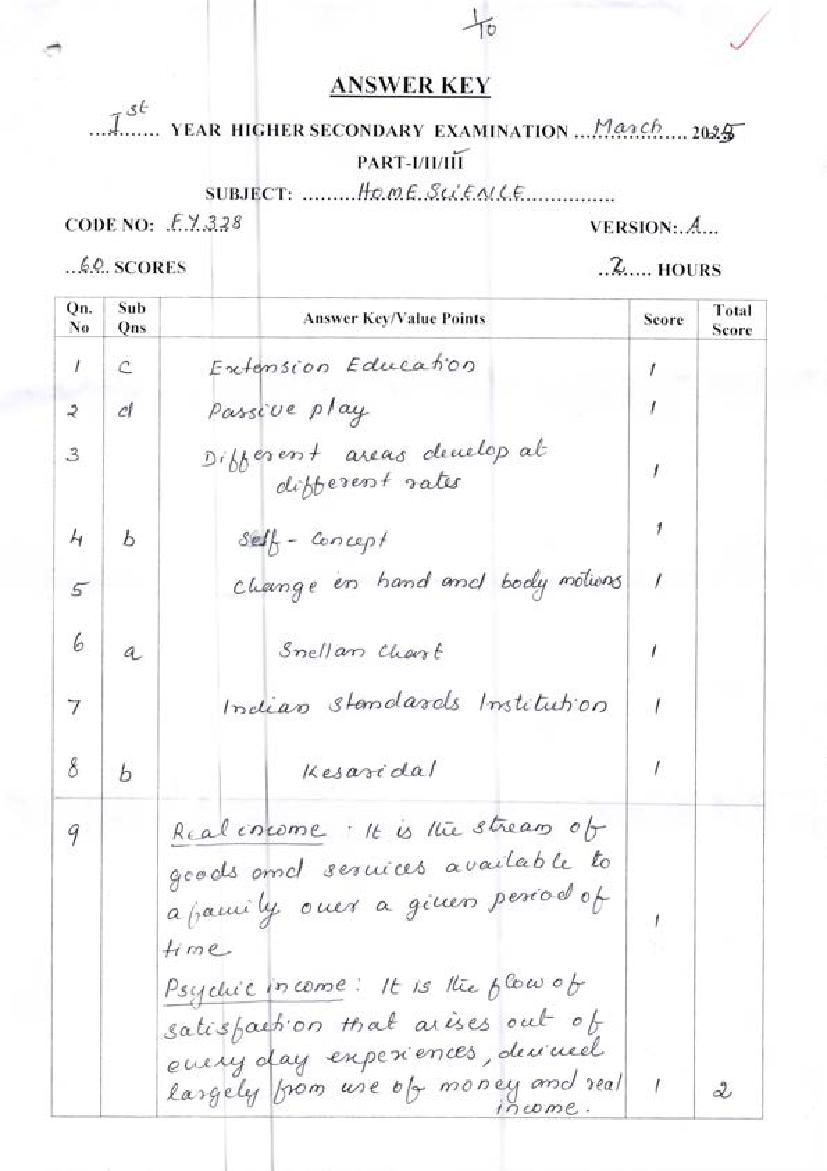 1/10
ANSWER KEY
...Ist... YEAR HIGHER SECONDARY EXAMINATION ...March... 2025
PART-I/II/III
SUBJECT: ...HOME SCIENCE...
CODE NO: F.Y.328 VERSION: A...
..60.. SCORES ..2.... HOURS
Qn. No Sub Qns Answer Key/Value Points Score Total Score
1 c Extension Education 1
2 d Passive play 1
3 Different areas develop at
different rates 1
4 b Self - Concept 1
5 Change in hand and body motions 1
6 a Snellan Chart 1
7 Indian Standards Institution 1
8 b Kesaridal 1
9 Real income : It is the stream of
goods and services available to
a family over a given period of 1
time
Psychic income : It is the flow of
satisfaction that arises out of
every day experiences, derived
largely from use of money and real 1 2
income.